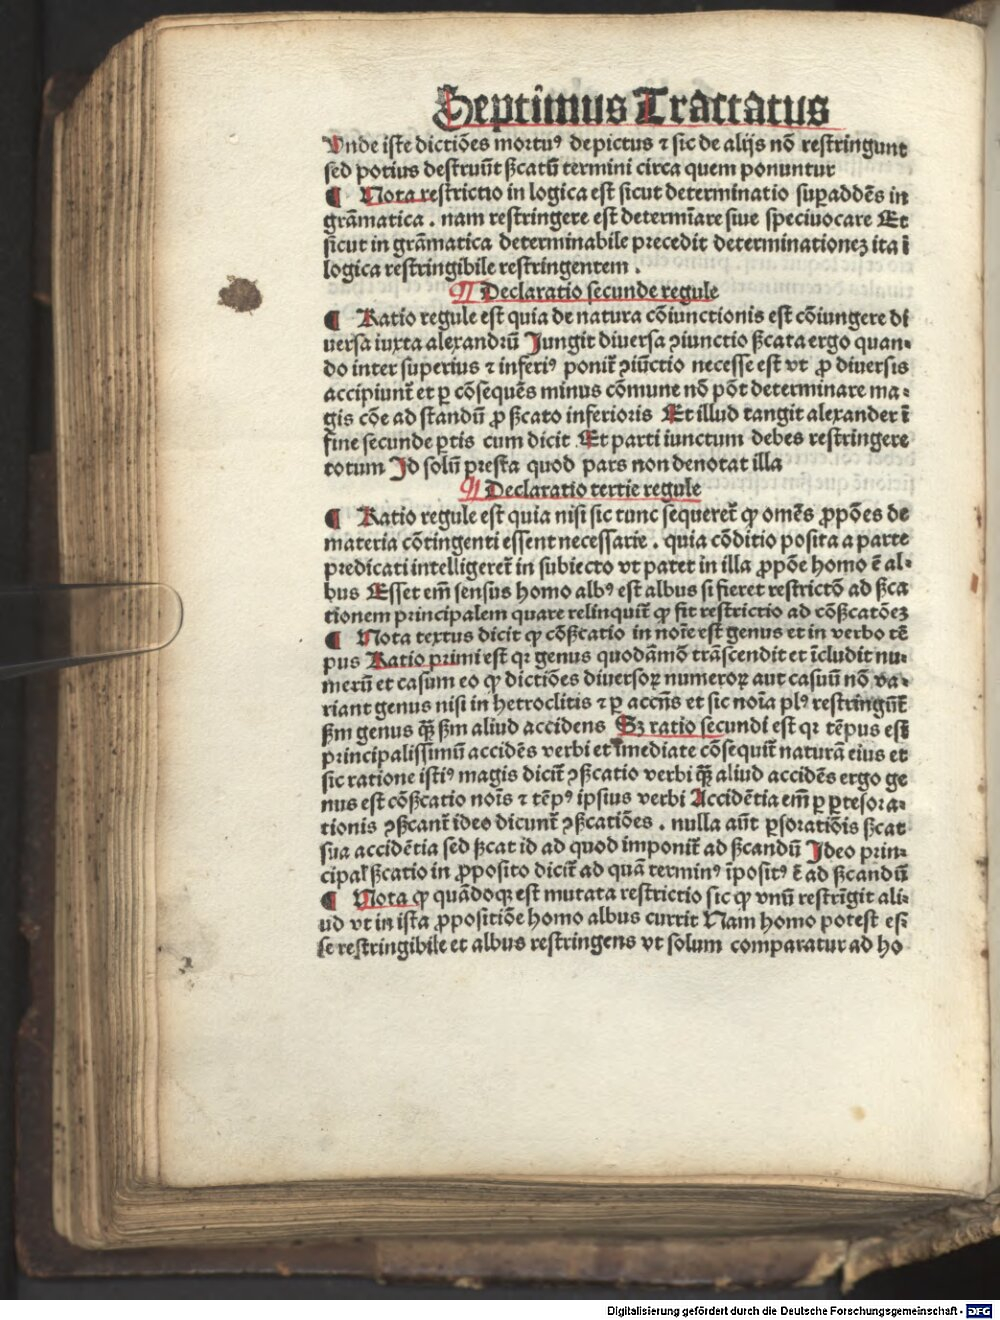 Septimus Tractatus
Unde iste dictiões mortuꝰ depictus ⁊ sic de alijs nõ restringunt
sed potius destruũt ſz̄catũ termini circa quem ponuntur
¶ Nota restrictio in logica est sicut determinatio suꝑaddẽs in
grãmatica . nam restringere est determĩare siue speciuocare Et
sicut in grãmatica determinabile precedit determinationeꝫ ita ĩ
logica restringibile restringentem .
¶ Declaratio secunde regule
¶ Ratio regule est quia de natura cõiunctionis est cõiungere di
uersa iuxta alexandrũ Jungit diuersa ꝯiunctio ſz̄cata ergo quan-
do inter superius ⁊ inferiꝰ ponit̃ ꝯiũctio necesse est vt ꝓ diuersis
accipiunt̃ et ꝑ cõsequẽs minus cõmune nõ põt determinare ma-
gis cõe ad standũ ꝓ ſz̄cato inferioris Et illud tangit alexander ĩ
fine secunde ꝑtis cum dicit Et parti iunctum debes restringere
totum Id solũ presta quod pars non denotat illa
¶ Declaratio tertie regule
¶ Ratio regule est quia nisi sic tunc sequeret̃ ꝙ omẽs ꝓpões de
materia cõtingenti essent necessarie . quia cõditio posita a parte
predicati intelligeret̃ in subiecto vt patet in illa ꝓpõe homo ẽ al-
bus Esset em̃ sensus homo albꝰ est albus si fieret restrictõ ad ſz̄ca
tionem principalem quare relinquit̃ ꝙ fit restrictio ad cõſz̄catõeꝫ
¶ Nota textus dicit ꝙ cõſz̄catio in noĩe est genus et in verbo tẽ
pus Ratio primi est qꝛ genus quodãmõ trãscendit et ĩcludit nu-
merũ et casum eo ꝙ dictiões diuersoꝝ numeroꝝ aut casuũ nõ va-
riant genus nisi in hetroclitis ⁊ ꝑ accñs et sic noĩa plꝰ restringũt̃
ſm̃ genus q̃ꝫ ſm̃ aliud accidens Sꝫ ratio secundi est qꝛ tẽpus est
principalissimũ accidẽs verbi et ĩmediate cõsequit̃ naturã eius et
sic ratione istiꝰ magis dicit̃ ꝯſz̄catio verbi q̃ꝫ aliud accidẽs ergo ge
nus est cõſz̄catio noĩs ⁊ tẽpꝰ ipsius verbi Accidẽtia em̃ ꝑ ꝑtes ora-
tionis ꝯſz̄cant̃ ideo dicunt̃ ꝯſz̄catiões . nulla aũt ꝑs oratiõis ſz̄cat
sua accidẽtia sed ſz̄cat id ad quod imponit̃ ad ſz̄candũ Ideo prin-
cipał ſz̄catio in ꝓposito dicit̃ ad quã terminꝰ ĩpositꝰ ẽ ad ſz̄candũ
¶ Nota ꝙ quãdoqꝫ est mutata restrictio sic ꝙ vnũ restrĩgit ali-
ud vt in ista ꝓpositiõe homo albus currit Nam homo potest es-
se restringibile et albus restringens vt solum comparatur ad ho
Digitalisierung gefördert durch die Deutsche Forschungsgemeinschaft - DFG